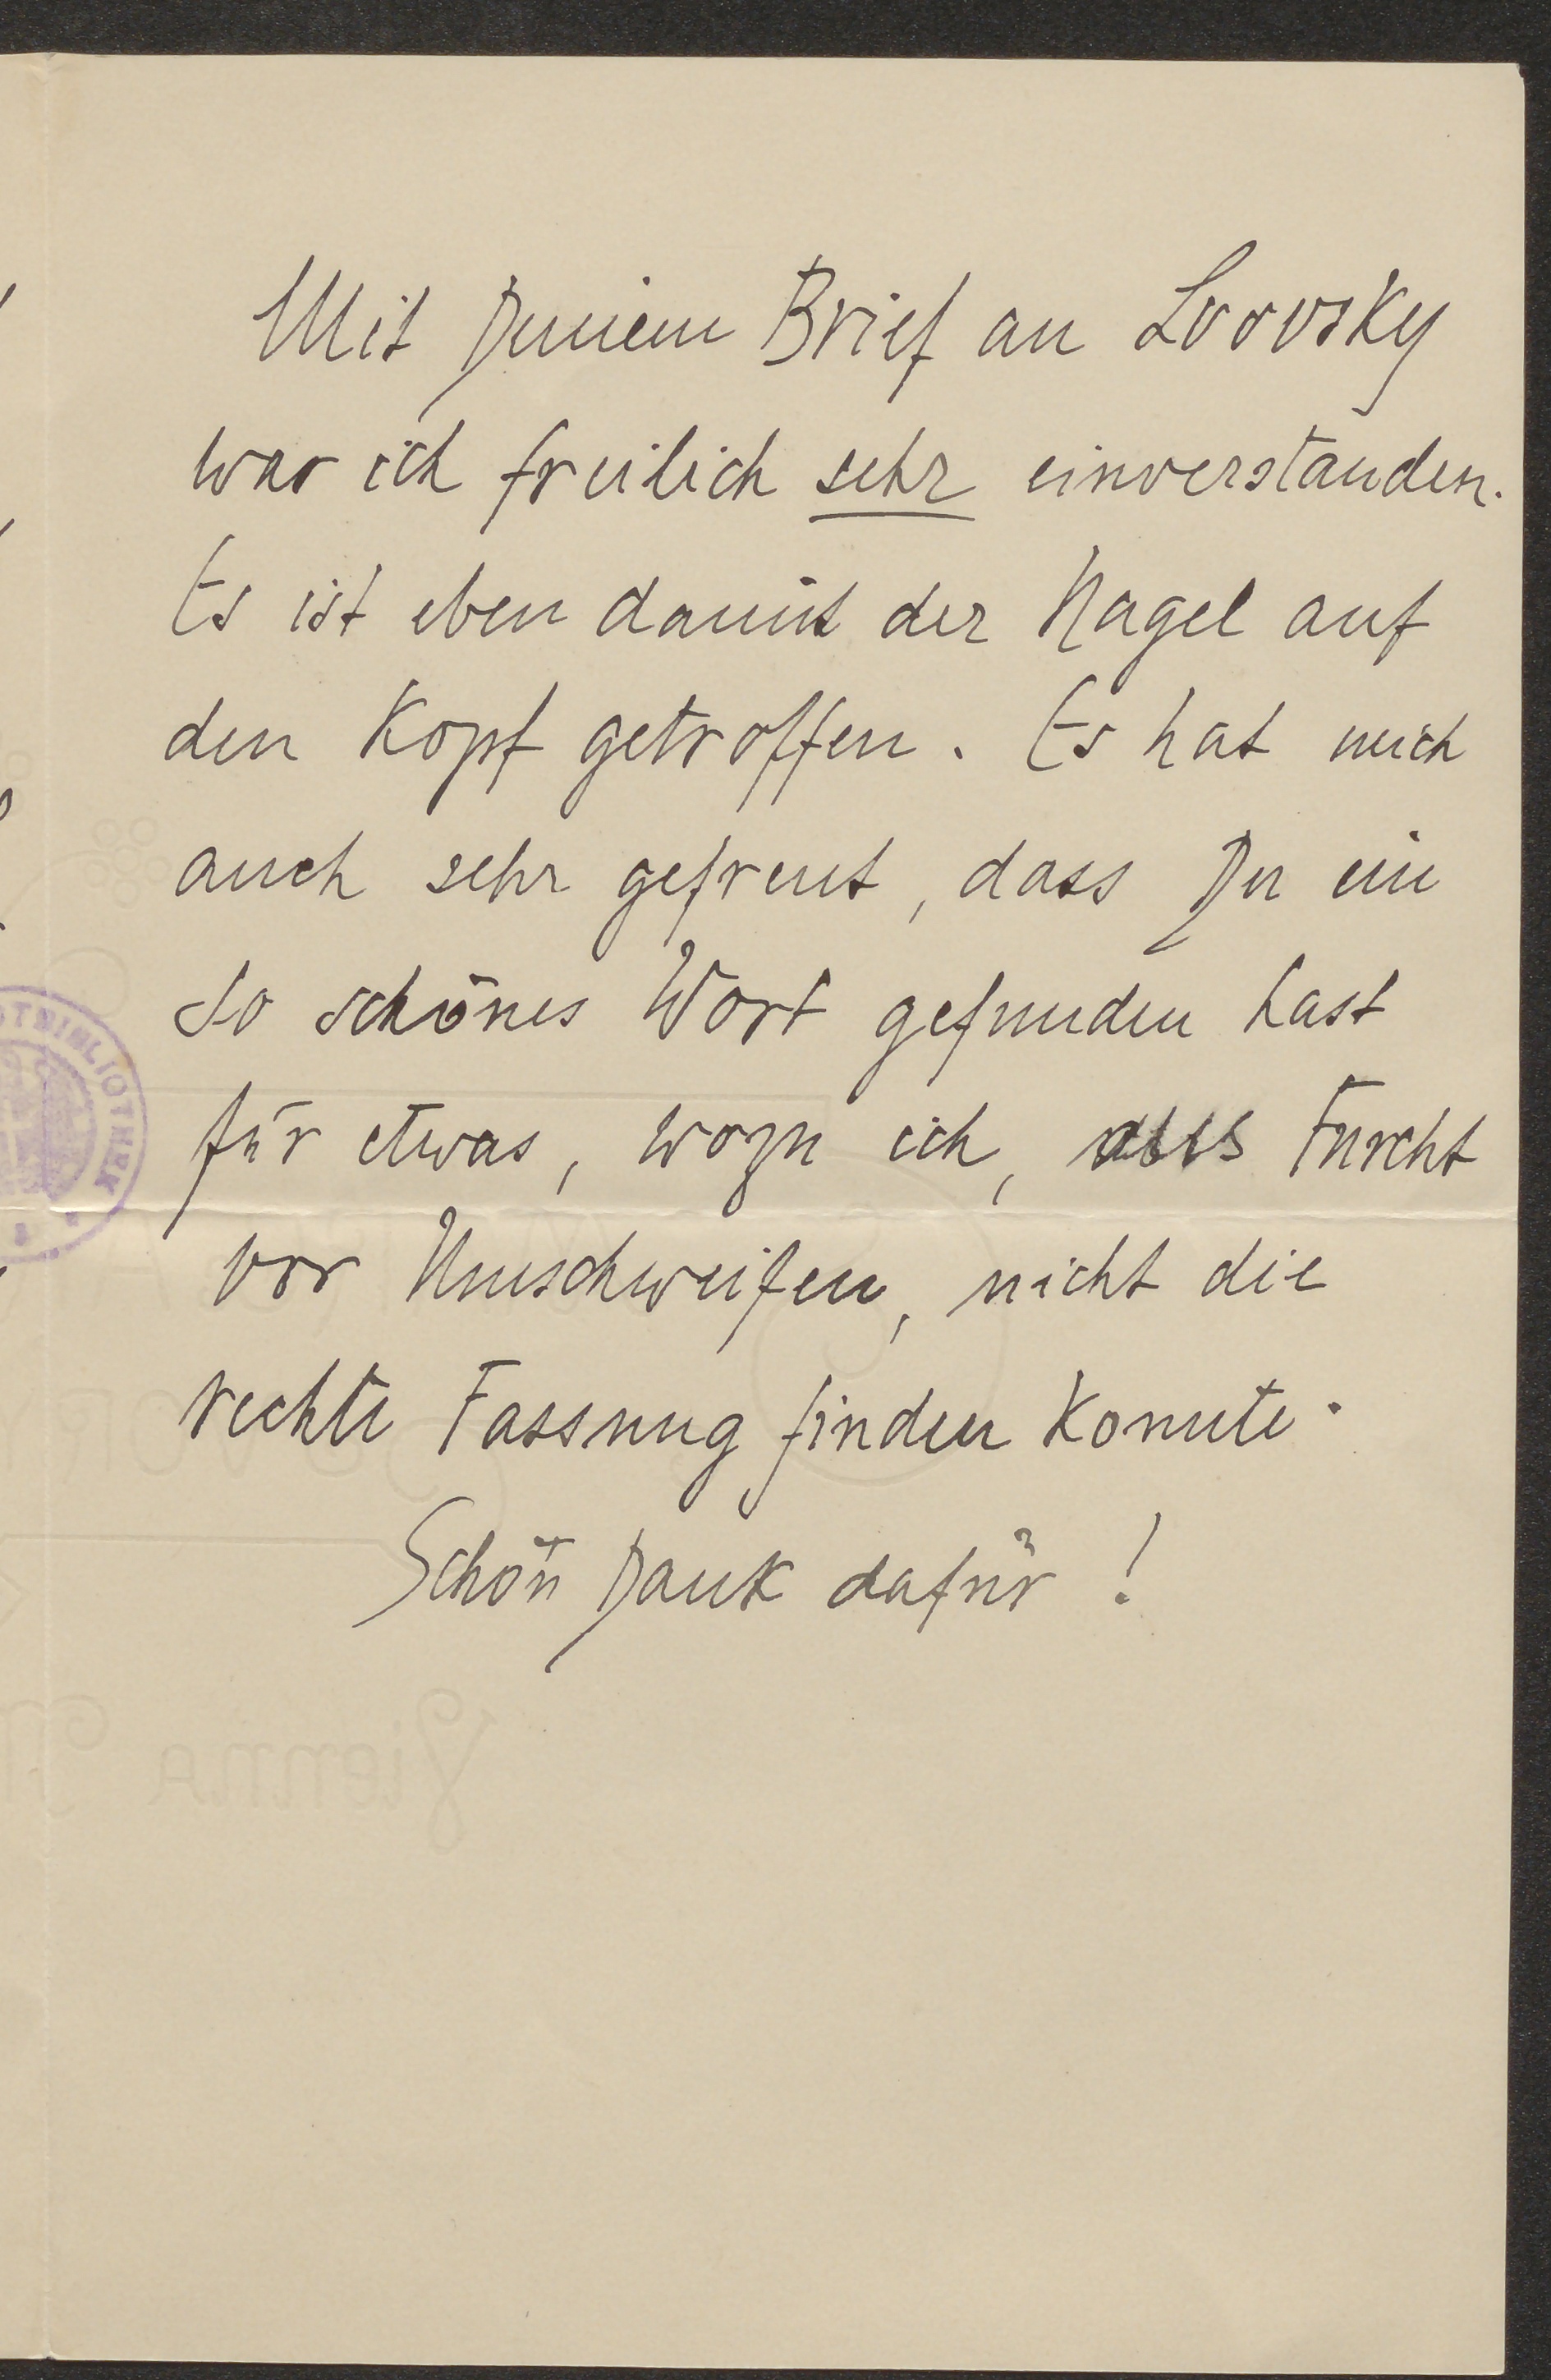 Mit Deinem Brief an Lvovsky
war ich freilich sehr einverstanden.
Es ist eben damit der Nagel auf
den Kopf getroffen. Es hat mich
auch sehr gefreut, dass Du ein
so schönes Wort gefunden hast
für etwas, wozu ich, aus Furcht
vor Umschweifen, nicht die
rechte Fassung finden konnte.
Schön Dank dafür!
BIBLIOTHEK
Vienna